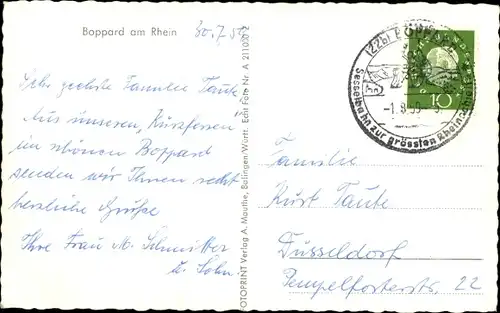 Boppard am Rhein
30.7.59
Sehr geehrte Familie Taute
Aus unseren „Kurzferien"
im schönen Boppard
senden wir Ihnen recht
herzliche Grüße
Ihre Frau M. Schmitter
u. Sohn.
FOTOPRINT Verlag A. Mauthe, Balingen-Württ. Echt Foto Nr. A 21102
(22b) BOPPARD
-1.8.59-
Sesselbahn zur grössten Rheinschleife
10
Familie
Kurt Taute
Düsseldorf
Tempelforterstr. 22